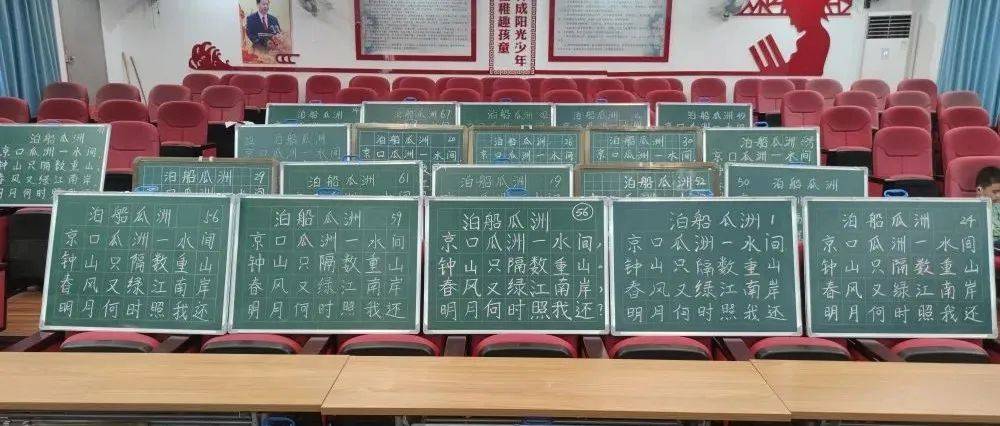 成阳光少年
稚趣孩童
泊船瓜洲 67
泊船瓜洲 49
泊船瓜洲
京口瓜洲一水间
钟山只隔数重山
春风又绿江南岸
明月何时照我还
泊船瓜洲
泊船瓜洲
京口瓜洲一水间
泊船瓜洲 26
京口瓜洲一水间
泊船瓜洲 30
京口瓜洲一水间
泊船瓜洲
京口瓜洲一水间
泊船瓜洲 29
泊船瓜洲 61
泊船瓜洲 19
泊船瓜洲 52
50 泊船瓜洲
泊船瓜洲 56
京口瓜洲一水间
钟山只隔数重山
春风又绿江南岸
明月何时照我还
泊船瓜洲 59
京口瓜洲一水间
钟山只隔数重山
春风又绿江南岸
明月何时照我还
泊船瓜洲 56
京口瓜洲一水间,
钟山只隔数重山。
春风又绿江南岸,
明月何时照我还?
泊船瓜洲 1
京口瓜洲一水间
钟山只隔数重山
春风又绿江南岸
明月何时照我还
泊船瓜洲 24
京口瓜洲一水间
钟山只隔数重山
春风又绿江南岸
明月何时照我还